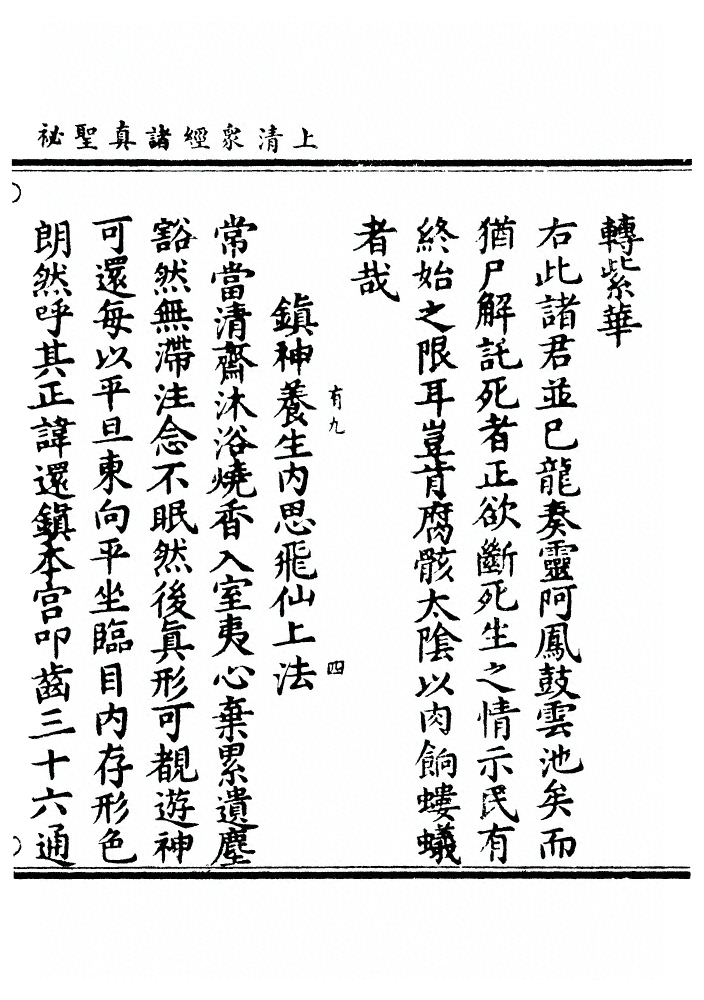 上清眾經諸真聖祕
轉紫華
右此諸君並巳龍奏靈阿鳳鼓雲池矣而
猶尸解託死者正欲斷死生之情示民有
終始之限耳豈肯腐骸太陰以肉餉螻蟻
者哉
有九
四
鎮神養生內思飛仙上法
常當清齋沐浴燒香入室夷心棄累遺塵
豁然無滯注念不眠然後真形可覩遊神
可還每以平旦東向平坐臨目內存形色
朗然呼其正諱還鎮本宫叩齒三十六通